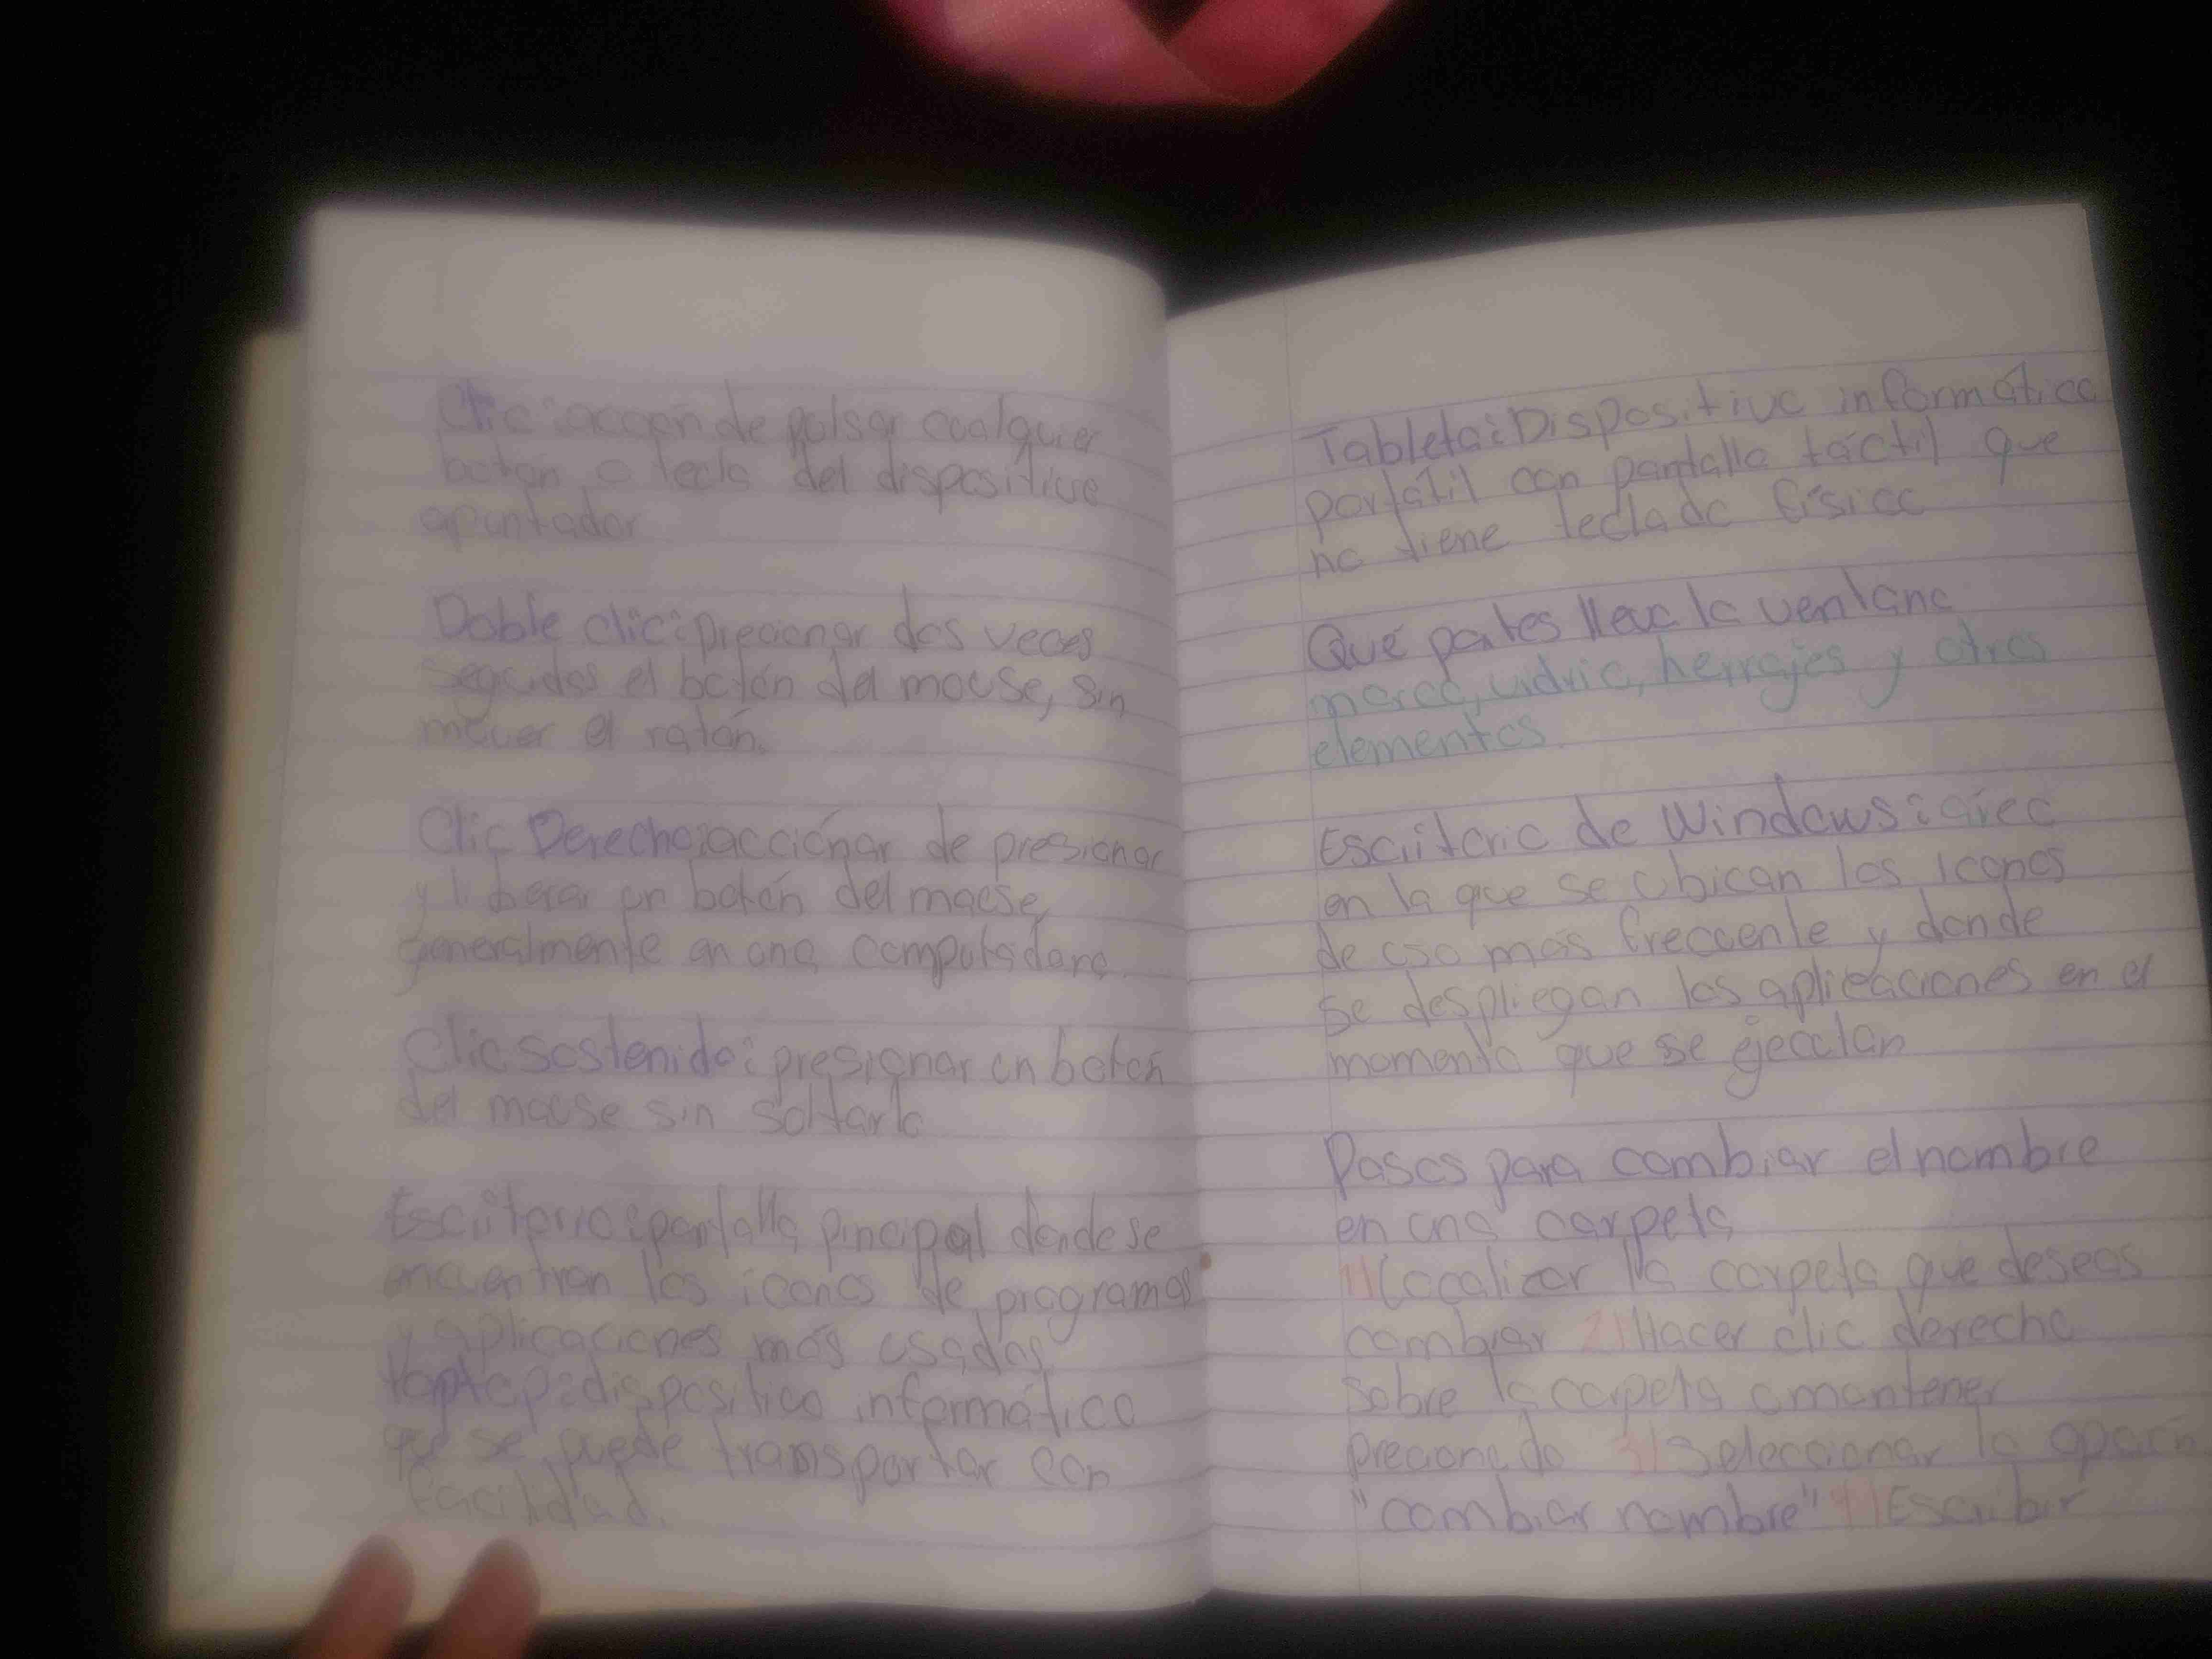 Clic: accion de pulsar cualquier
botón o tecla del dispositivo
apuntador
Doble clic: precionar dos veces
seguidas el botón del mouse, sin
mover el ratón.
Clic Derecho: acciónar de presionar
y liberar un botón del mouse,
generalmente en una computadora.
Clic sostenido: presionar un botón
del mouse sin soltarlo
Escritorio: pantalla principal donde se
encuentran los iconos de programas
y aplicaciones más usadas
laptop: dispositivo informático
que se puede transportar con
facilidad.
Tableta: Dispositivo informático
portátil con pantalla táctil que
no tiene teclado físico
Qué partes lleva la ventana
marco, vidrio, herrajes y otros
elementos.
Escritorio de Windows: área
en la que se ubican los iconos
de uso más frecuente y donde
se despliegan las aplicaciones en el
momento que se ejecutan
Pasos para cambiar el nombre
en una carpeta
1) Localizar la carpeta que deseas
cambiar 2) Hacer clic derecho
sobre la carpeta o mantener
precionado 3) Seleccionar la opción
"cambiar nombre" 4) Escribir